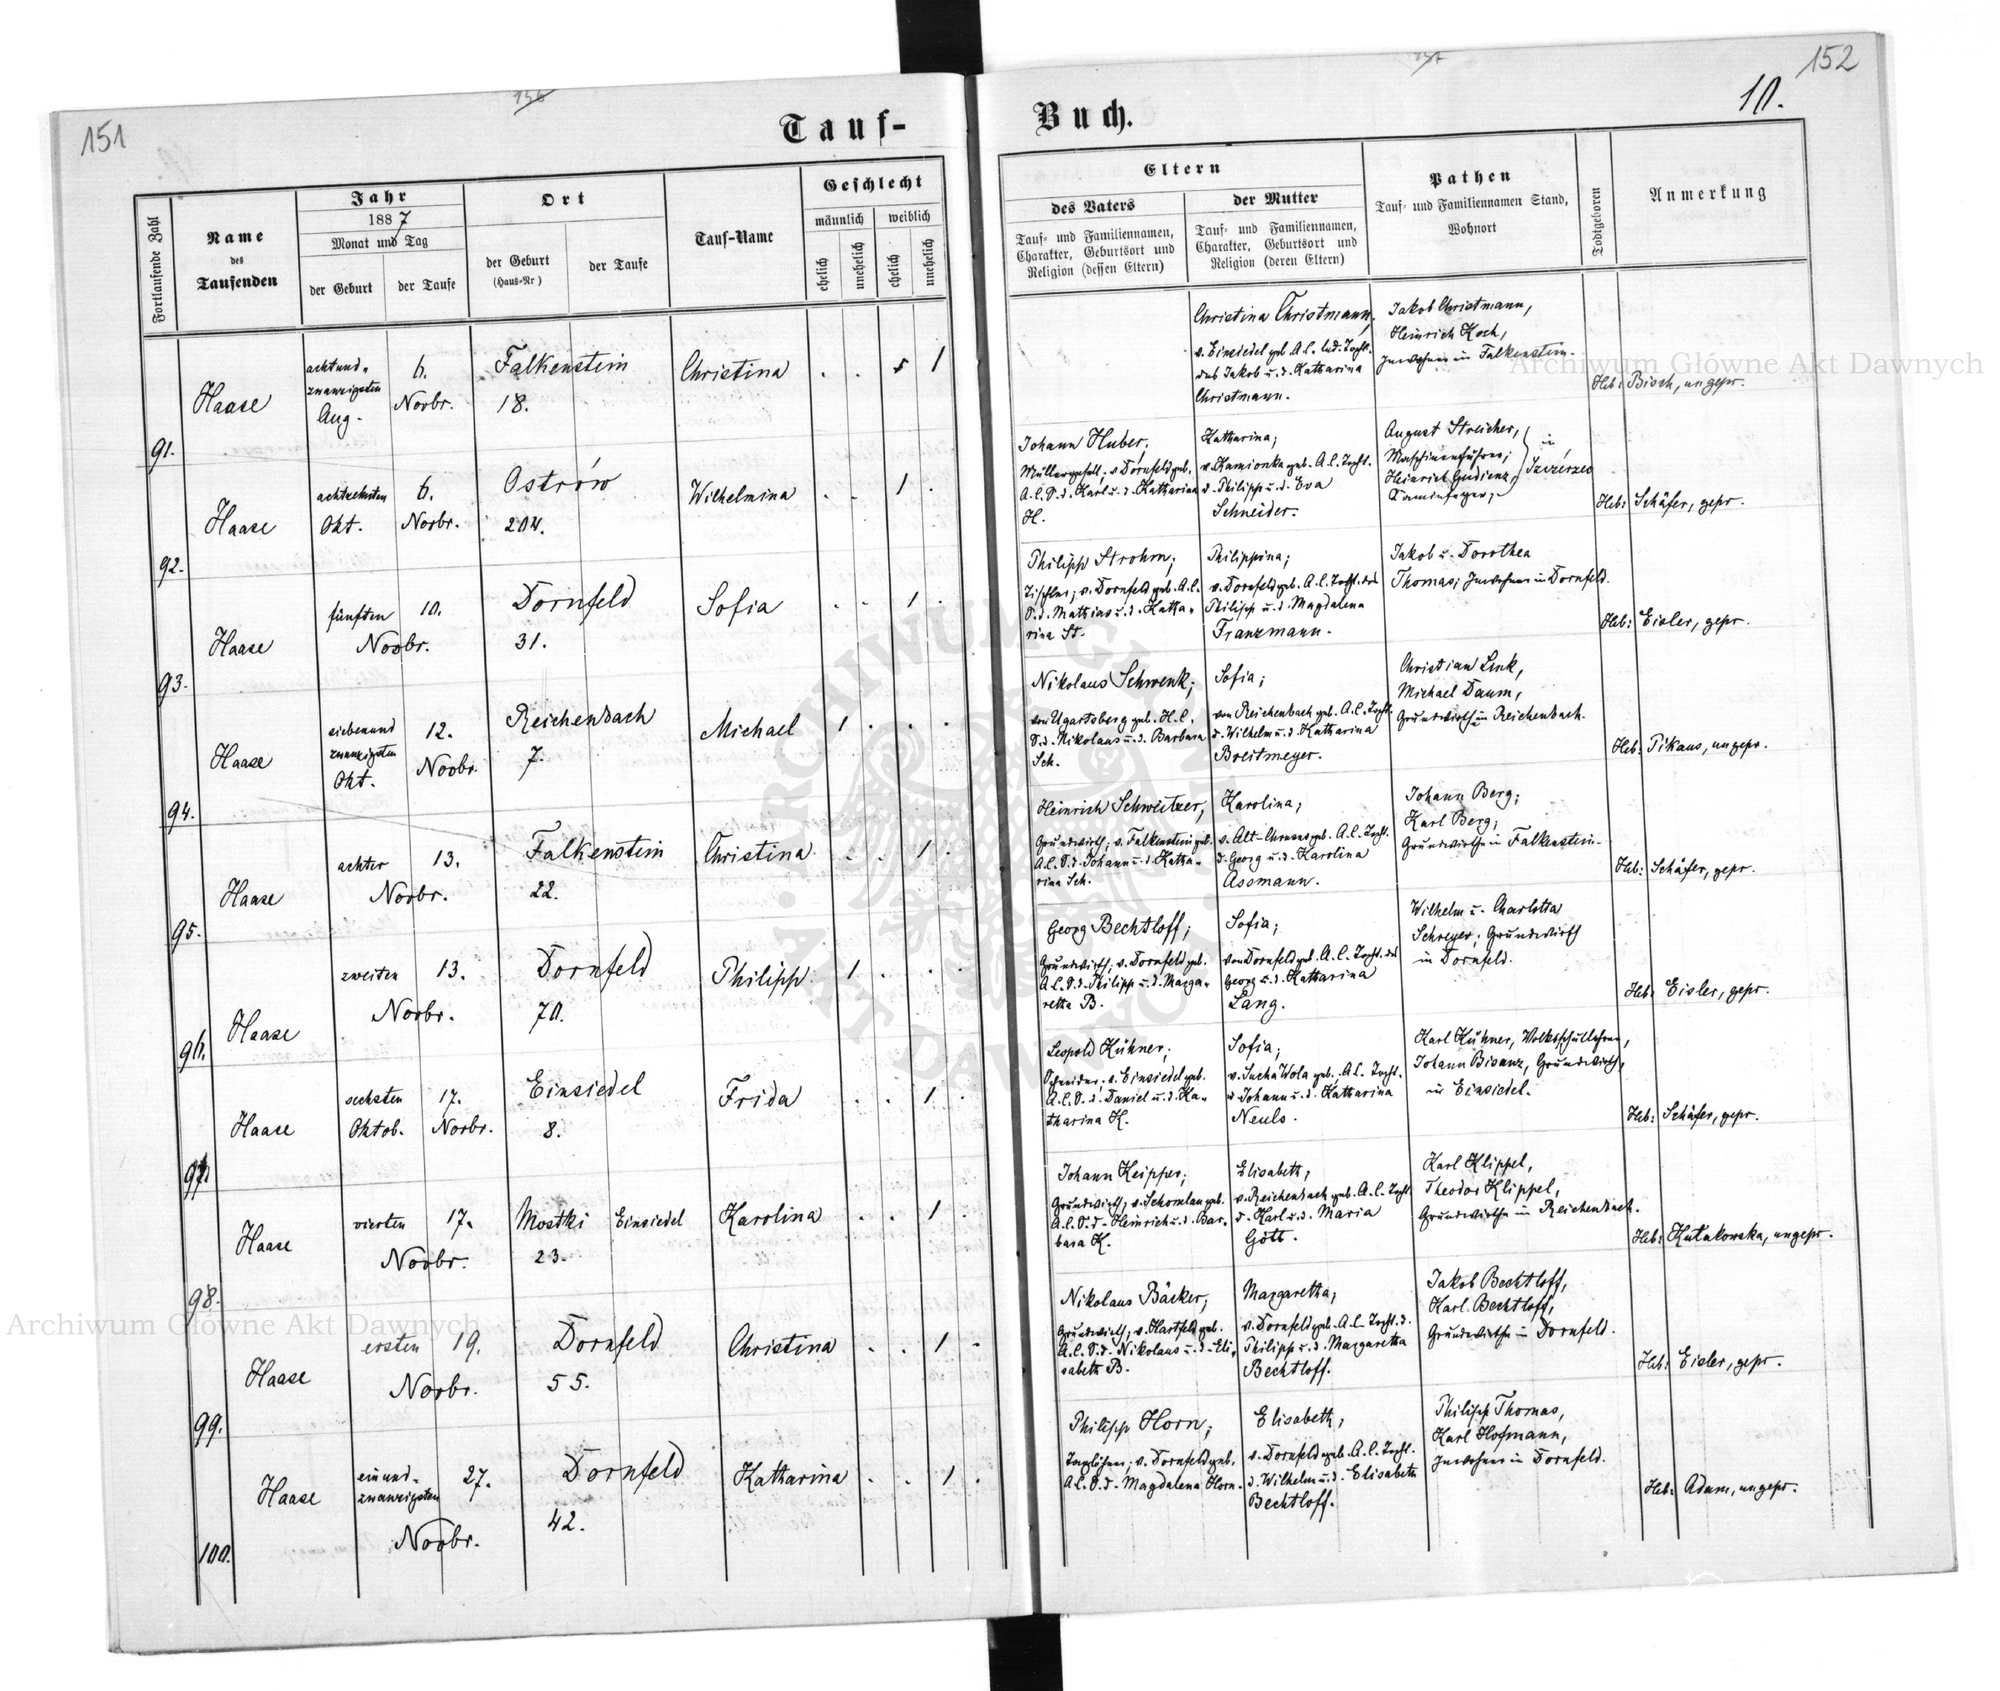 151
156
152
157
10.
Tauf-
Buch.
Fortlaufende Zahl
Name
des
Taufenden
Jahr
1887
Monat und Tag
der Geburt
der Taufe
Ort
der Geburt
(Haus-Nr)
der Taufe
Tauf-Name
Geschlecht
männlich
weiblich
ehelich
unehelich
ehelich
unehelich
Eltern
des Vaters
Tauf- und Familiennamen,
Charakter, Geburtsort und
Religion (dessen Eltern)
der Mutter
Tauf- und Familiennamen,
Charakter, Geburtsort und
Religion (deren Eltern)
Pathen
Tauf- und Familiennamen Stand,
Wohnort
Todtgeboren
Anmerkung
91.
Haase
achtund-
zwanzigsten
Aug.
6.
Novbr.
Falkenstein
18.
Christina
. . 1
Christina Christmann,
v. Einsiedel geb. A.C. led. Tocht.
des Jakob u. d. Katharina
Christmann.
Jakob Christmann,
Heinrich Koch,
Inwohner in Falkenstein.
Heb: Bisch, ungepr.
92.
Haase
achtzehnten
Okt.
6.
Novbr.
Ostrów
204.
Wilhelmina
. . 1 .
Johann Huber,
Müllergesell, v. Dornfeld geb.
A.C. S. d. Karl u. d. Katharina
H.
Katharina;
v. Kamionka geb. A.C. Tocht.
d. Philipp u. d. Eva
Schneider.
August Streicher,
Maschinenführer;
Heinrich Gudienz,
Kaminfeger;
in
Szczerzec
Heb: Schäfer, gepr.
93.
Haase
fünften
Novbr.
10.
Dornfeld
31.
Sofia
. . 1 .
Philipp Strohm;
Tischler; v. Dornfeld geb. A.C.
S. d. Mathias u. d. Katha-
rina St.
Philippina;
v. Dornfeld geb. A.C. Tocht. des
Philipp u. d. Magdalena
Franzmann.
Jakob u. Dorothea
Thomas; Inwohner in Dornfeld.
Heb: Eisler, gepr.
94.
Haase
siebenund
zwanzigsten
Okt.
12.
Novbr.
Reichenbach
7.
Michael
1 . . .
Nikolaus Schwenk;
von Ugartsberg geb. H.C.
S. d. Nikolaus u. d. Barbara
Sch.
Sofia;
von Reichenbach geb. A.C. Tocht.
d. Wilhelm u. d. Katharina
Breitmeyer.
Christian Link,
Michael Daum,
Grundwirthe in Reichenbach.
Heb: Pikaus, ungepr.
95.
Haase
achter
Novbr.
13.
Falkenstein
22.
Christina
. . 1 .
Heinrich Schweitzer,
Grundwirth; v. Falkenstein geb.
A.C. S. d. Johann u. d. Katha-
rina Sch.
Karolina;
v. Alt-Chrusno geb. A.C. Tocht.
d. Georg u. d. Karolina
Assmann.
Johann Berg;
Karl Berg;
Grundwirthe in Falkenstein.
Heb: Schäfer, gepr.
96.
Haase
zweiten
Novbr.
13.
Dornfeld
70.
Philipp
1 . . .
Georg Bechtloff;
Grundwirth; v. Dornfeld geb.
A.C. S. d. Philipp u. d. Marga-
retha B.
Sofia;
von Dornfeld geb. A.C. Tocht. des
Georg u. d. Katharina
Lang.
Wilhelm u. Charlotta
Schreyer; Grundwirth
in Dornfeld.
Heb: Eisler, gepr.
97.
Haase
sechsten
Oktob.
17.
Novbr.
Einsiedel
8.
Frida
. . 1 .
Leopold Kühner;
Schneider; v. Einsiedel geb.
A.C. S. d. Daniel u. d. Ka-
tharina K.
Sofia;
v. Sucha Wola geb. A.C. Tocht.
d. Johann u. d. Katharina
Neuls.
Karl Kühner, Volksschullehrer,
Johann Bisanz, Grundwirth,
in Einsiedel.
Heb: Schäfer, gepr.
98.
Haase
vierten
Novbr.
17.
Mostki
Einsiedel
23.
Karolina
. . 1 .
Johann Keipper;
Grundwirth, v. Schomlau geb.
A.C. S. d. Heinrich u. d. Bar-
bara K.
Elisabeth;
v. Reichenbach geb. A.C. Tocht.
d. Karl u. d. Maria
Gött.
Karl Klippel,
Theodor Klippel,
Grundwirthe in Reichenbach.
Heb: Kulukowska, ungepr.
99.
Haase
ersten
Novbr.
19.
Dornfeld
55.
Christina
. . 1 .
Nikolaus Bäcker;
Grundwirth, v. Hartfeld geb.
A.C. S. d. Nikolaus u. d. Eli-
sabeth B.
Margaretha;
v. Dornfeld geb. A.C. Tocht. d.
Philipp u. d. Margaretha
Bechtloff.
Jakob Bechtloff,
Karl Bechtloff,
Grundwirthe in Dornfeld.
Heb: Eisler, gepr.
100.
Haase
einund-
zwanzigsten
Novbr.
27.
Dornfeld
42.
Katharina
. . 1 .
Philipp Horn;
Taglöhner; v. Dornfeld geb.
A.C. S. d. Magdalena Horn.
Elisabeth;
v. Dornfeld geb. A.C. Tocht.
d. Wilhelm u. d. Elisabeth
Bechtloff.
Philipp Thomas,
Karl Hofmann,
Inwohner in Dornfeld.
Heb: Adam, ungepr.
Archiwum Główne Akt Dawnych
Archiwum Główne Akt Dawnych
ARCHIWUM GŁÓWNE AKT DAWNYCH